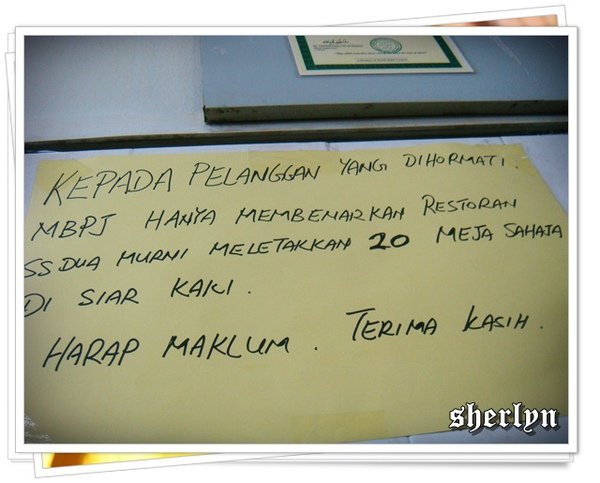 KEPADA PELANGGAN YANG DIHORMATI.
MBPJ HANYA MEMBENARKAN RESTORAN
SS DUA MURNI MELETAKKAN 20 MEJA SAHAJA
DI SIAR KAKI.
HARAP MAKLUM. TERIMA KASIH.
sherlyn